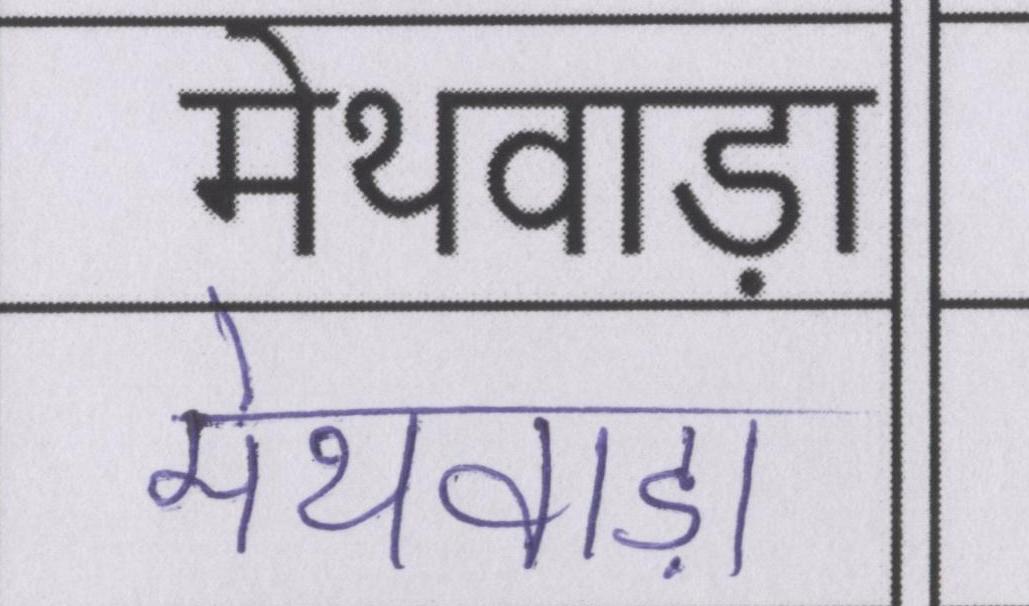 मेथवाड़ा
मेथवाड़ा